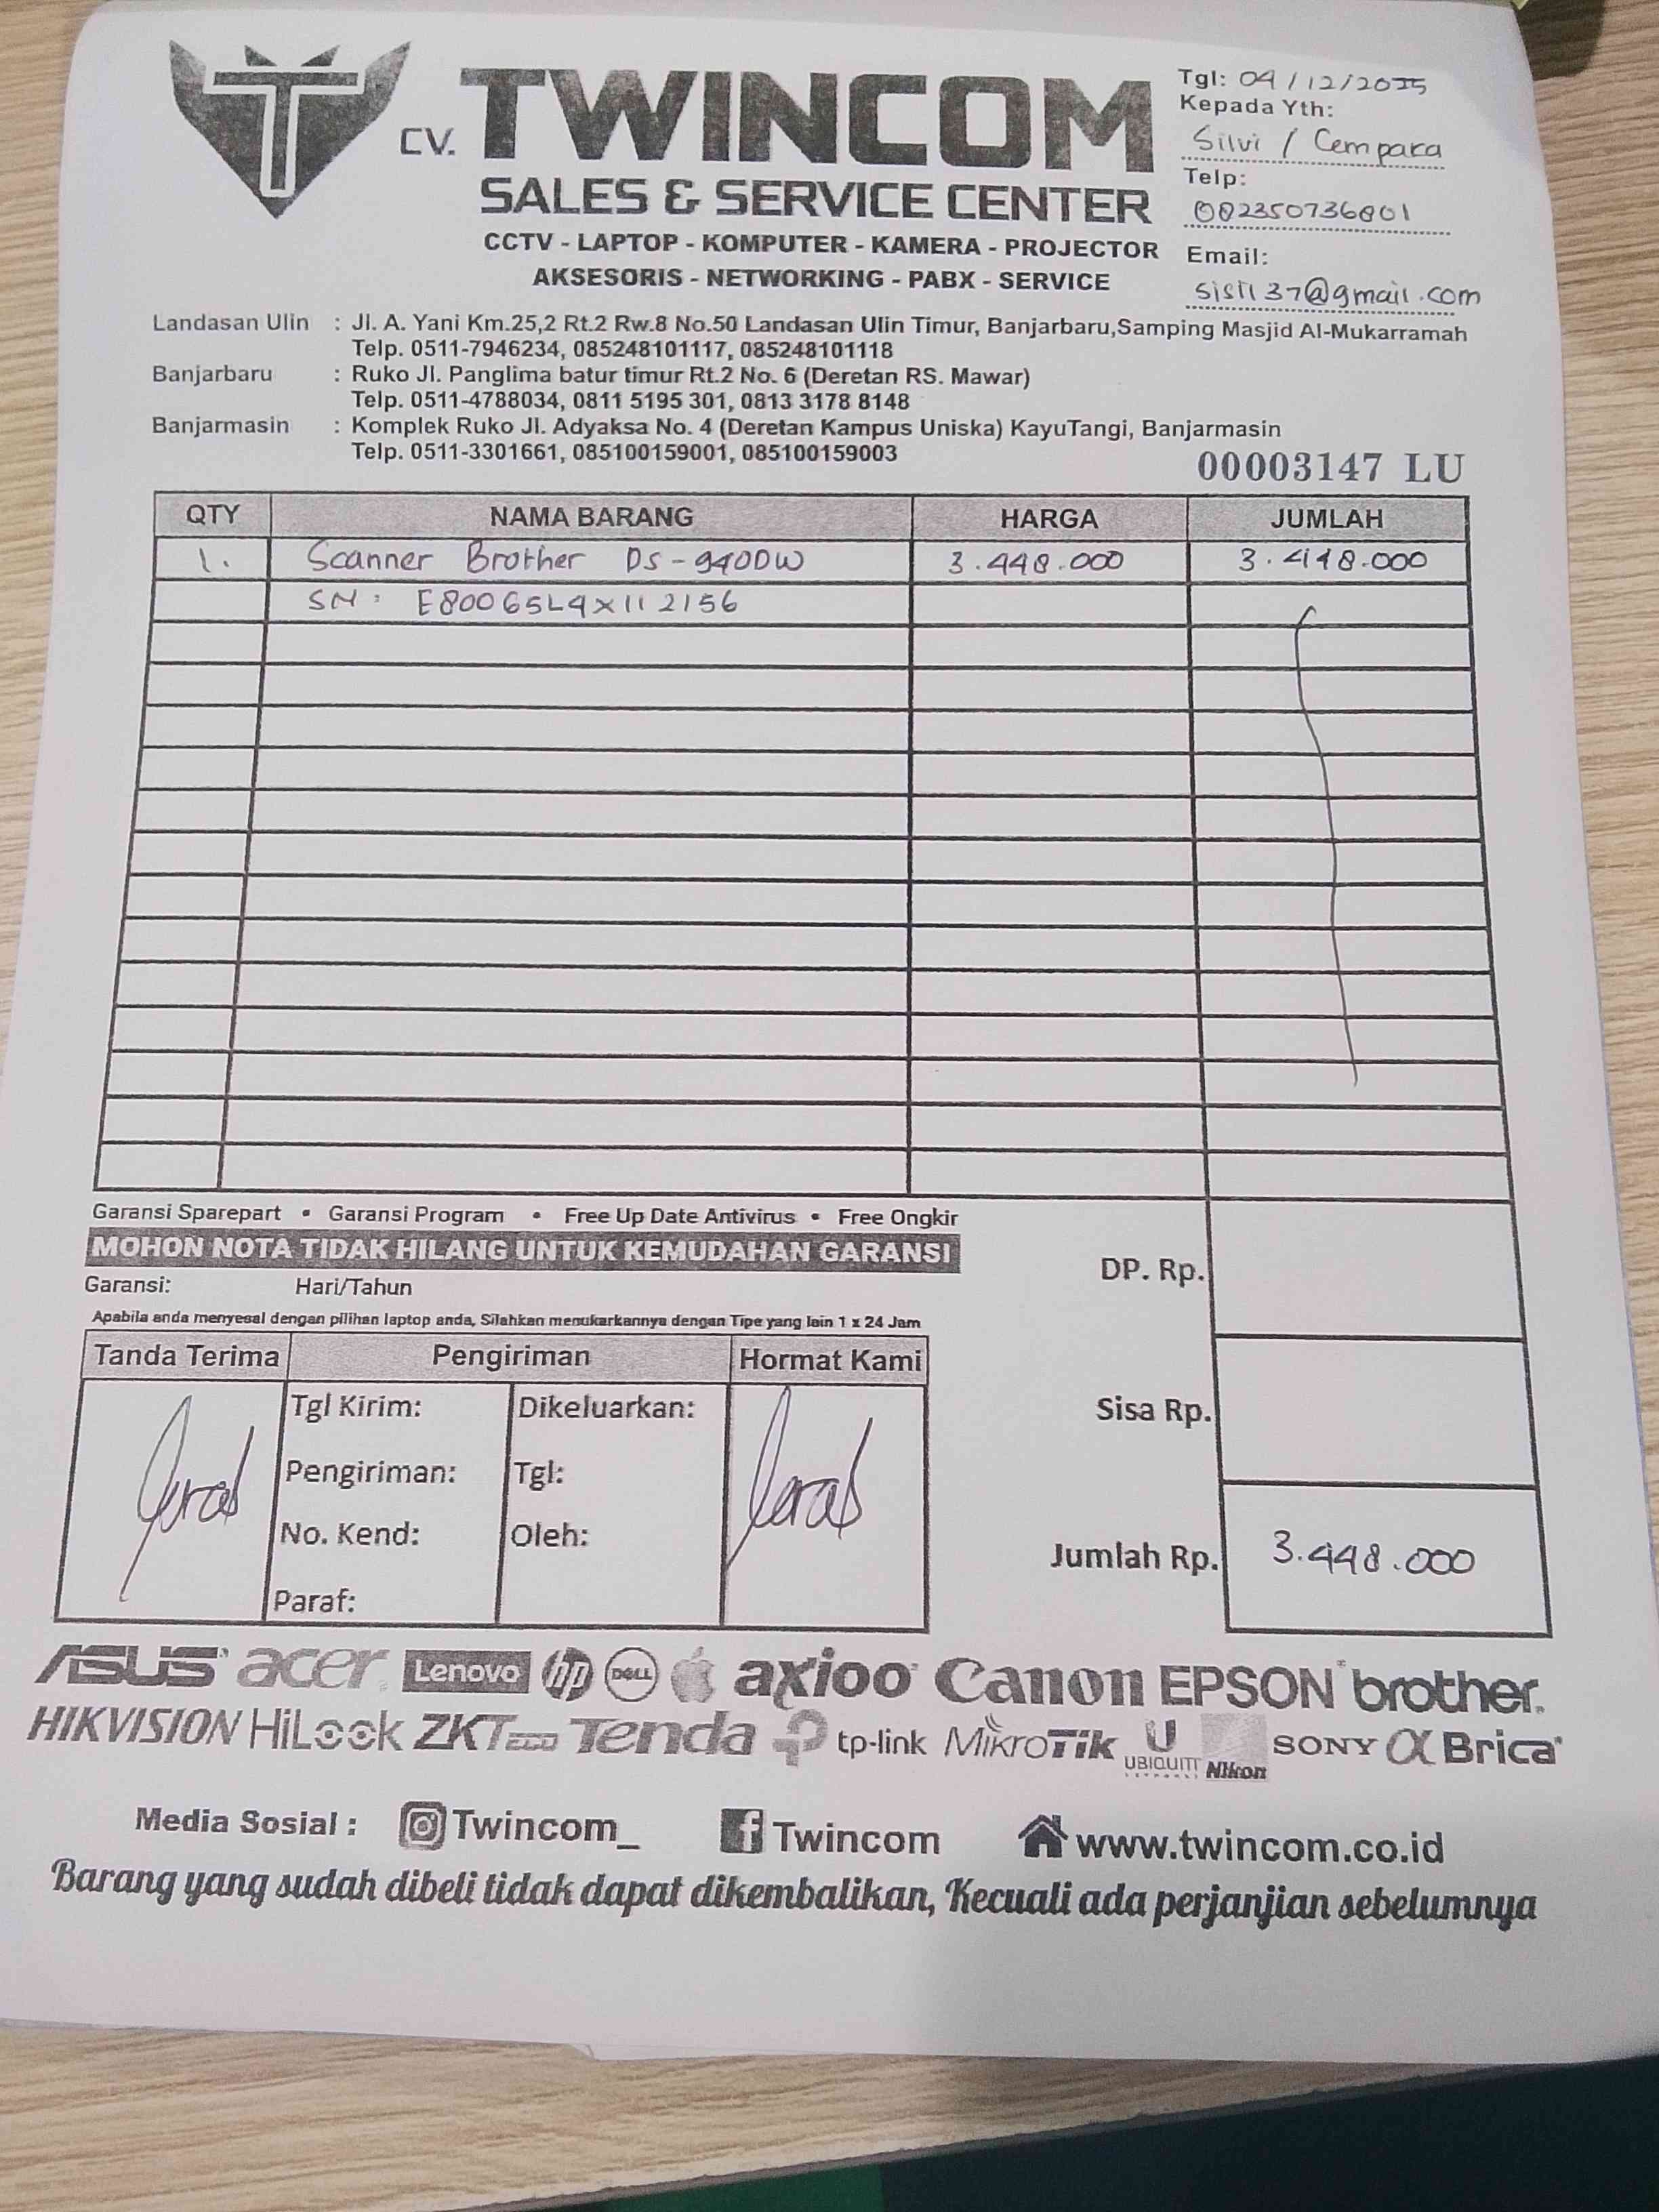 T
CV. TWINCOM
SALES & SERVICE CENTER
CCTV - LAPTOP - KOMPUTER - KAMERA - PROJECTOR
AKSESORIS - NETWORKING - PABX - SERVICE
Tgl: 04/12/2025
Kepada Yth:
Silvi / Cempaca
Telp:
082350736801
Email:
@gmail.com
Landasan Ulin : Jl. A. Yani Km.25,2 Rt.2 Rw.8 No.50 Landasan Ulin Timur, Banjarbaru,Samping Masjid Al-Mukarramah
Telp. 0511-7946234, 085248101117, 085248101118
Banjarbaru : Ruko Jl. Panglima batur timur Rt.2 No. 6 (Deretan RS. Mawar)
Telp. 0511-4788034, 0811 5195 301, 0813 3178 8148
Banjarmasin : Komplek Ruko Jl. Adyaksa No. 4 (Deretan Kampus Uniska) KayuTangi, Banjarmasin
Telp. 0511-3301661, 085100159001, 085100159003
00003147 LU
QTY NAMA BARANG HARGA JUMLAH
1. Scanner Brother DS-940DW 3.448.000 3.448.000
SN: E80065L4X112156
Garansi Sparepart • Garansi Program • Free Up Date Antivirus • Free Ongkir
MOHON NOTA TIDAK HILANG UNTUK KEMUDAHAN GARANSI
Garansi: Hari/Tahun
Apabila anda menyesal dengan pilihan laptop anda, Silahkan menukarkannya dengan Tipe yang lain 1 x 24 Jam
DP. Rp.
Sisa Rp.
Jumlah Rp. 3.448.000
Tanda Terima Pengiriman Hormat Kami
Tgl Kirim: Dikeluarkan:
Pengiriman: Tgl:
No. Kend: Oleh:
Paraf:
ASUS acer Lenovo hp DELL axioo Canon EPSON brother
HIKVISION HiLook ZKTeco Tenda tp-link MikroTik U UBIQUITI Nikon SONY α Brica
Media Sosial : Twincom_ Twincom www.twincom.co.id
Barang yang sudah dibeli tidak dapat dikembalikan, Kecuali ada perjanjian sebelumnya